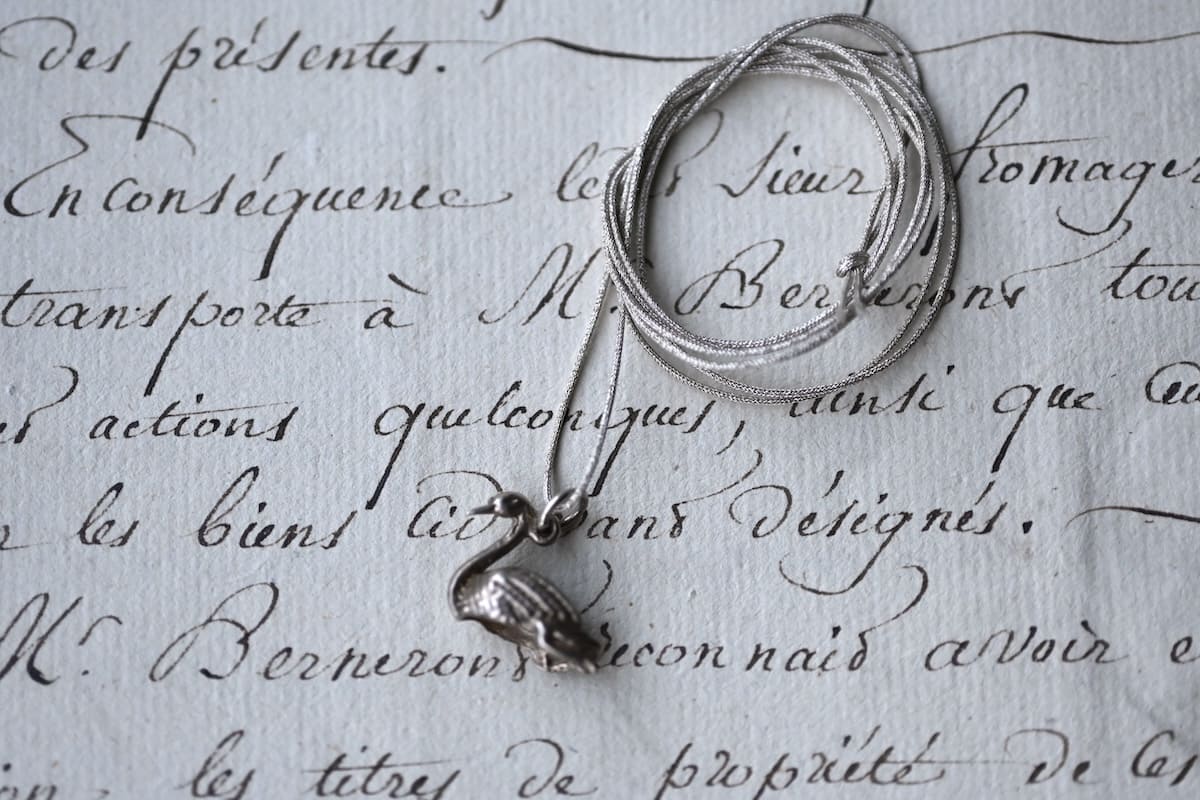 des présentes.
En conséquence le Sieur fromager
transporte à Mr. Bernerons tou
actions quelconques, ainsi que
les biens cid ans désignés.
Mr. Bernerons reconnaid avoir e
les titres de propriété de ces